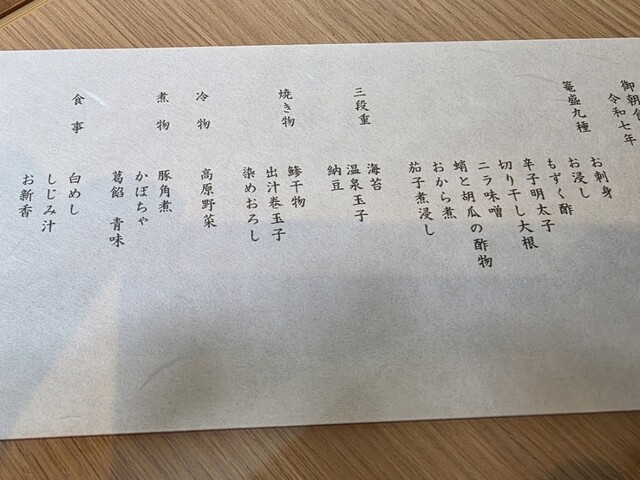 御朝食
令和七年
籠盛九種
お刺身
お浸し
もずく酢
辛子明太子
切り干し大根
ニラ味噌
蛸と胡瓜の酢物
おから煮
茄子煮浸し
三段重
海苔
温泉玉子
納豆
焼き物
鯵干物
出汁巻玉子
染めおろし
冷物
高原野菜
煮物
豚角煮
かぼちゃ
葛餡 青味
食事
白めし
しじみ汁
お新香